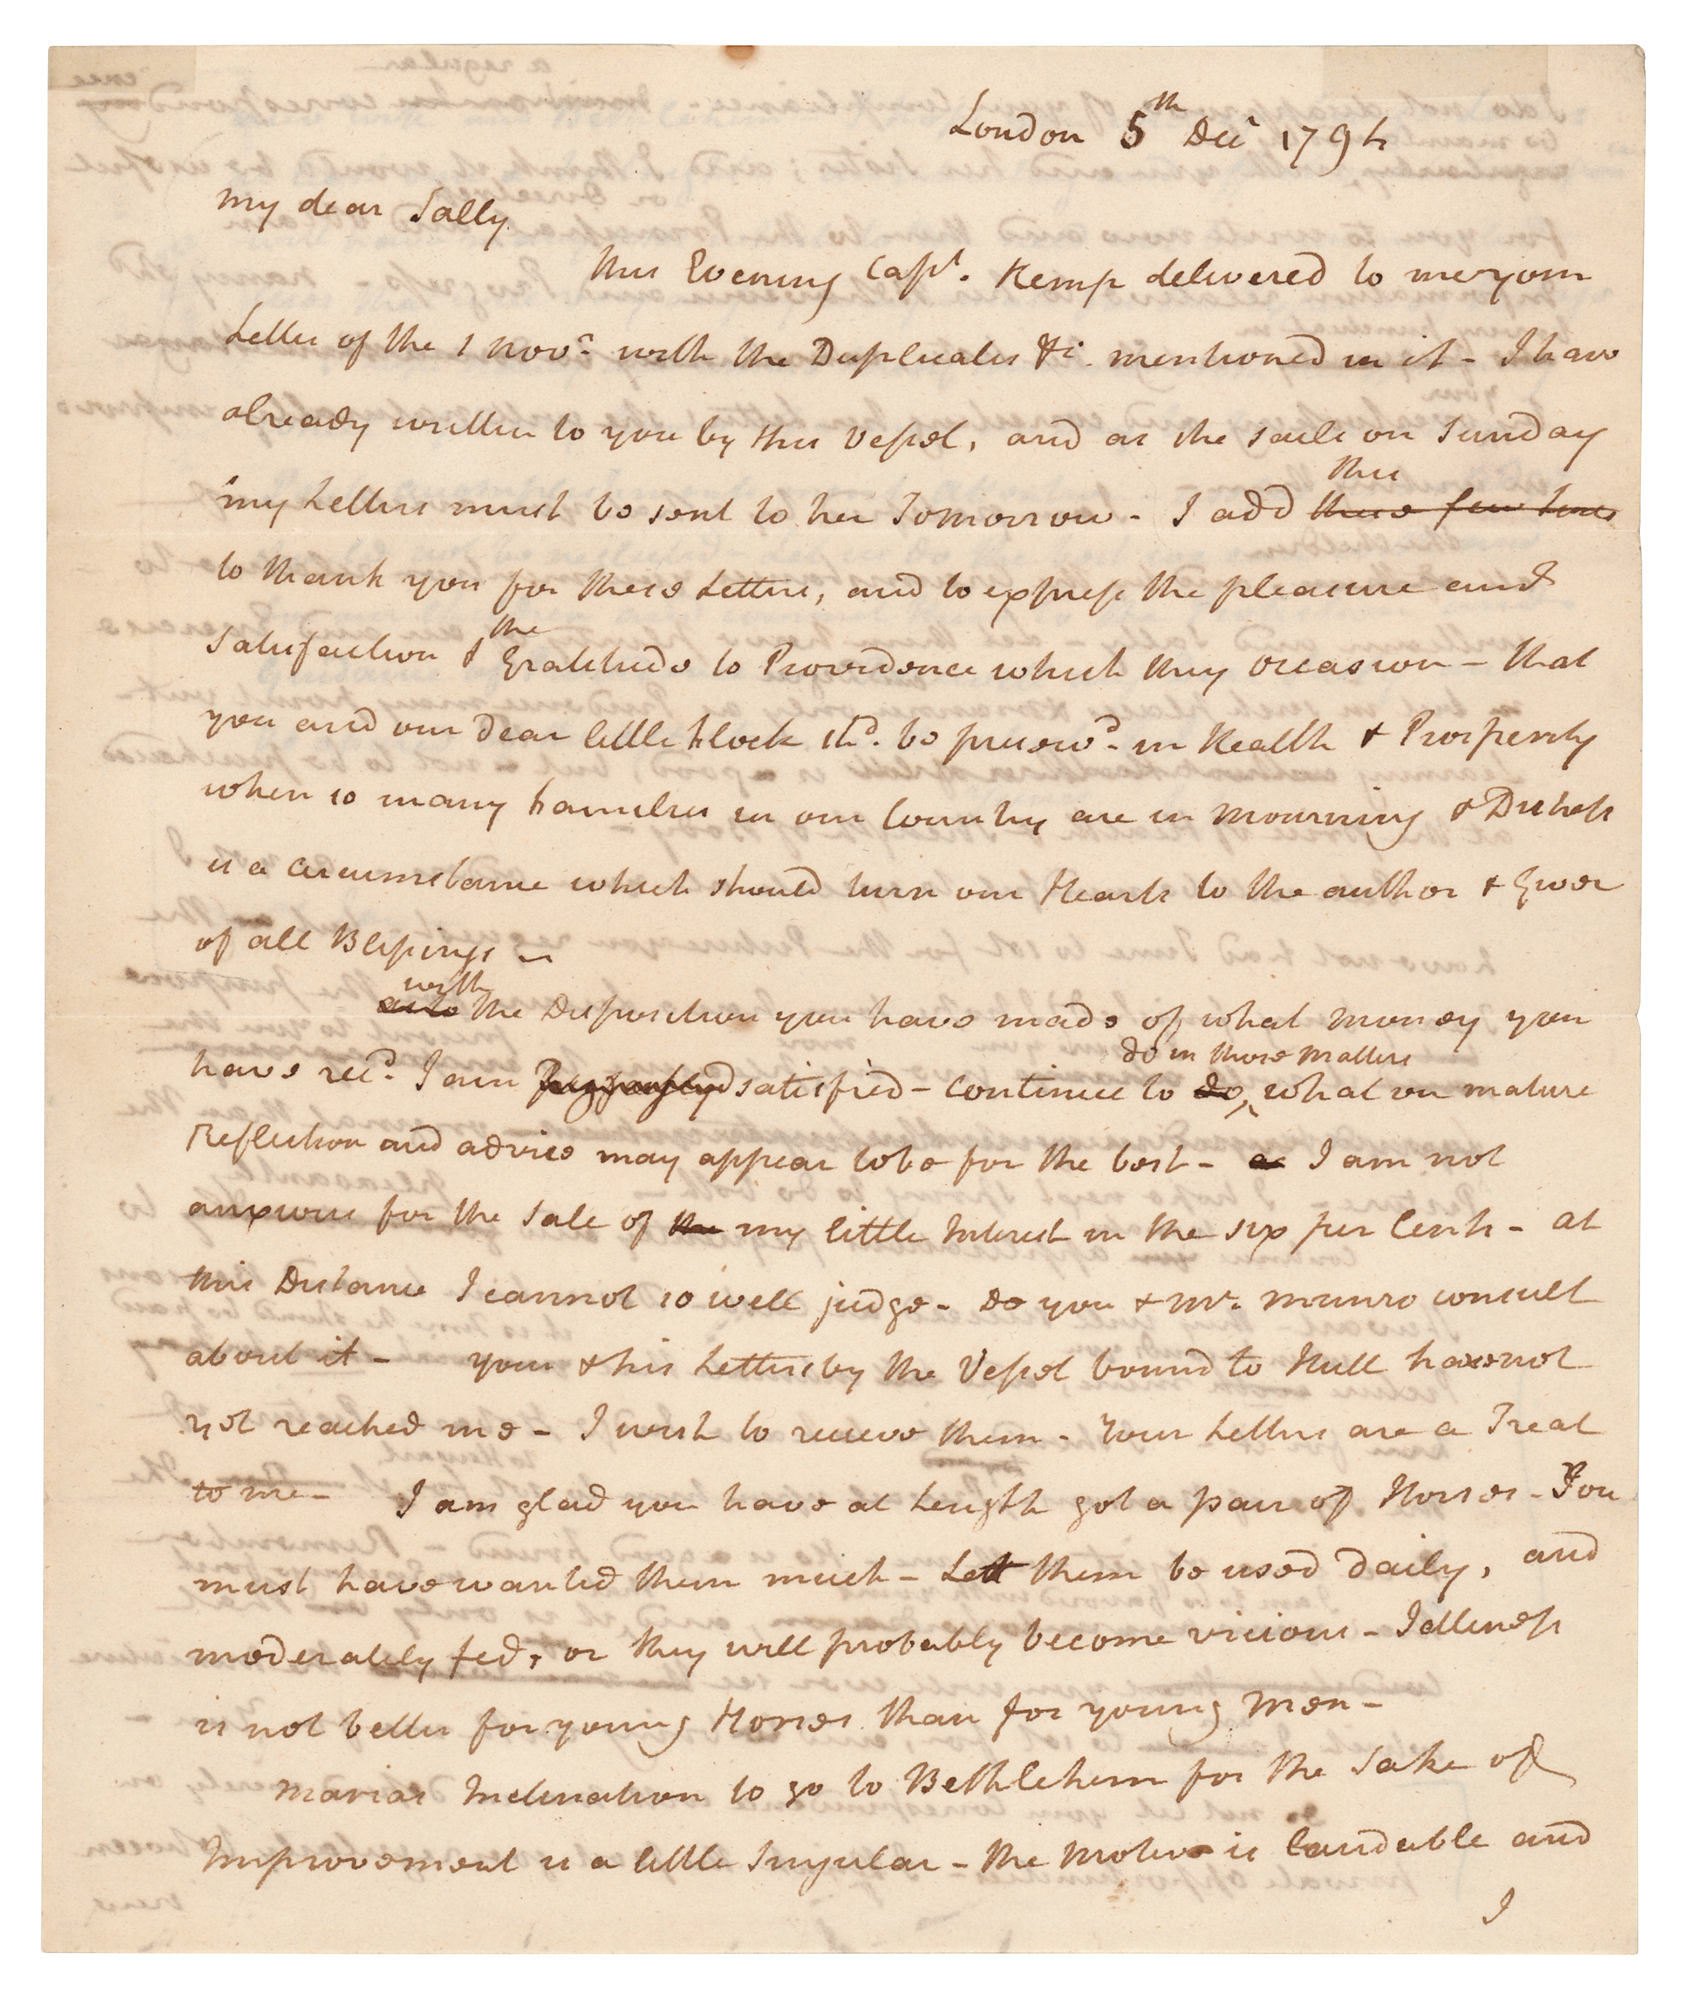 London 5th Decr 1794
My dear Sally
This Evening Capt. Kemp delivered to me your
Letter of the 1 Novr. with the Duplicates &c. mentioned in it - I have
already written to you by this Vessel, and as she sails on Sunday
my Letters must be sent to her Tomorrow - I add this these few Lines
to thank you for these Letters, and to express the pleasure and
Satisfaction & the Gratitude to Providence which they occasion - that
you and our dear little Flock shd. be preservd. in Health & Prosperity
when so many Families in our Country are in Mourning & Distress
is a circumstance which should turn our Hearts to the author & Giver
of all Blessings -
with the Disposition you have made of what money you
have recd. I am satisfied - continue to do do in those Matters what on mature
Reflection and advice may appear to be for the best - I am not
anxious for the Sale of the my little Interest in the six per Cents - at
this Distance I cannot so well judge - Do you & Mr. Munro consult
about it - your & his Letters by the Vessel bound to Hull have not
yet reached me - I wish to receive them - Your Letters are a Treat
to me - I am glad you have at Length got a pair of Horses - You
must have wanted them much - Let them be used daily, and
moderately fed, or they will probably become vicious - Idleness
is not better for young Horses than for young Men -
Marias Inclination to go to Bethlehem for the Sake of
Improvement is a little Singular - the Motive is laudable and
I